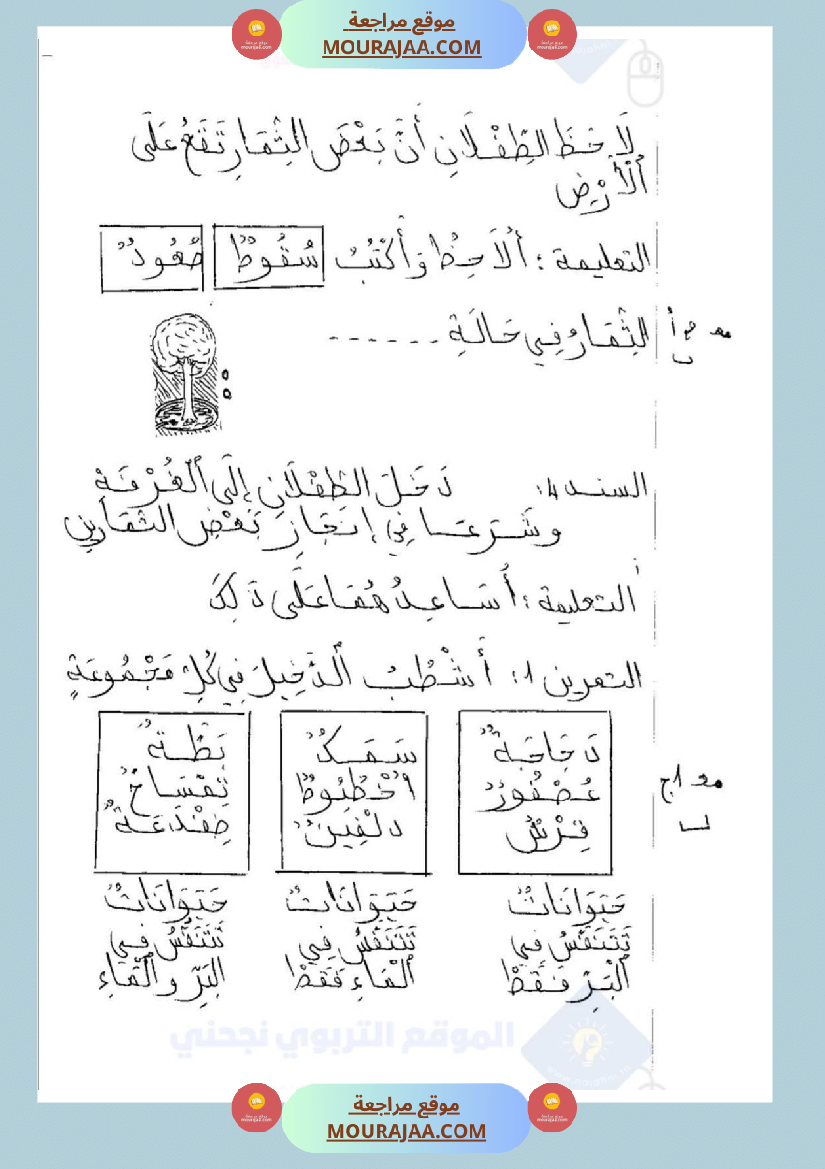 موقع مراجعة
MOURAJAA.COM
لَاحَظَ الطِّفْلَانِ أَنَّ بَعْضَ الثِّمَارِ تَقَعُ عَلَى
الْأَرْضِ
التعليمة : أُلَاحِظُ وَ أَكْتُبُ سُقُوطٌ صُعُودٌ
الثِّمَارُ فِي حَالَةِ . . . . . .
السند 4: دَخَلَ الطِّفْلَانِ إِلَى الْغُرْفَةِ
وشَرَعَا فِي إِنْجَازِ بَعْضِ التَّمَارِينِ
التعليمة : أُسَاعِدُهُمَا عَلَى ذَلِكَ
التمرين 1: أَشْطُبُ الدَّخِيلَ فِي كُلِّ مَجْمُوعَةٍ
دَجَاجَةٌ سَمَكٌ بَطَّةٌ
عُصْفُورٌ أُخْطُبُوطٌ تِمْسَاحٌ
قِرْشٌ دلْفِينٌ ضِفْدَعَةٌ
حَيَوَانَاتٌ حَيَوَانَاتٌ حَيَوَانَاتٌ
تَتَنَفَّسُ فِي تَتَنَفَّسُ فِي تَتَنَفَّسُ فِي
الْبَرِّ فَقَطْ الْمَاءِ فَقَطْ الْبَرِّ و الْمَاءِ
الموقع التربوي نجحني
موقع مراجعة
MOURAJAA.COM